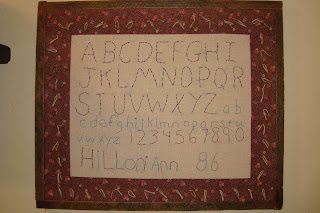 ABCDEFGHI
JKLMNOPQR
STUVWXYZ ab
cdefghijklmnopqrstu
vwxyz 1234567890
HiLLoniAnn 86